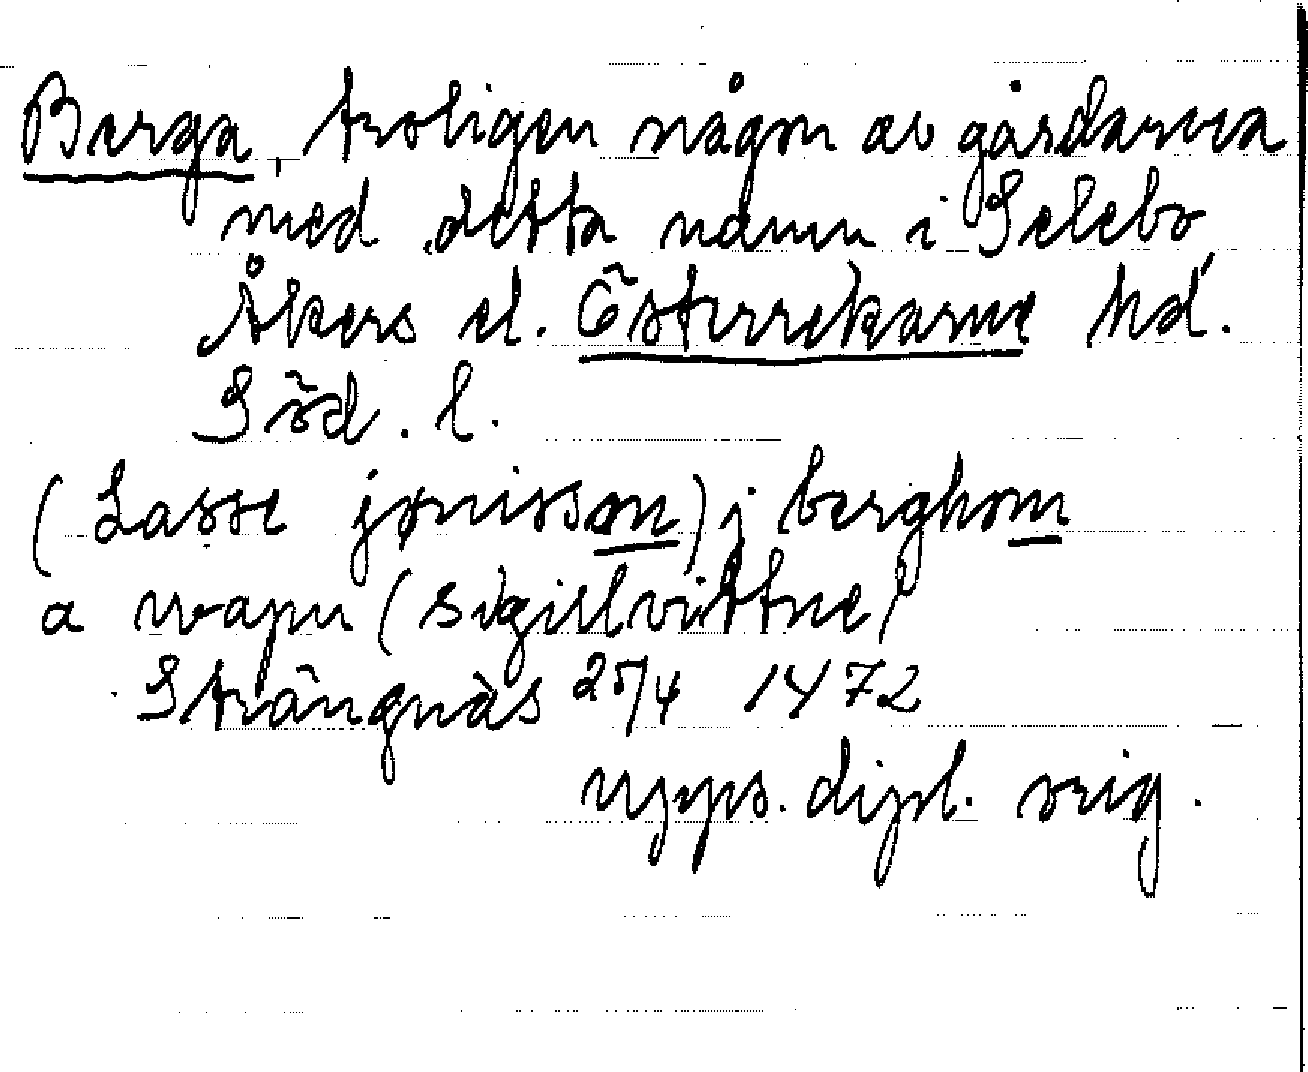 Berga, troligen någon av gårdarna
med detta namn i Selebo
Åkers el. Österrekarne hd.
Söd. l.
(Lasse jønisson) j berghom
a wapn (sigillvittne)
Strängnäs 25/4 1472
Upps. dipl. orig.